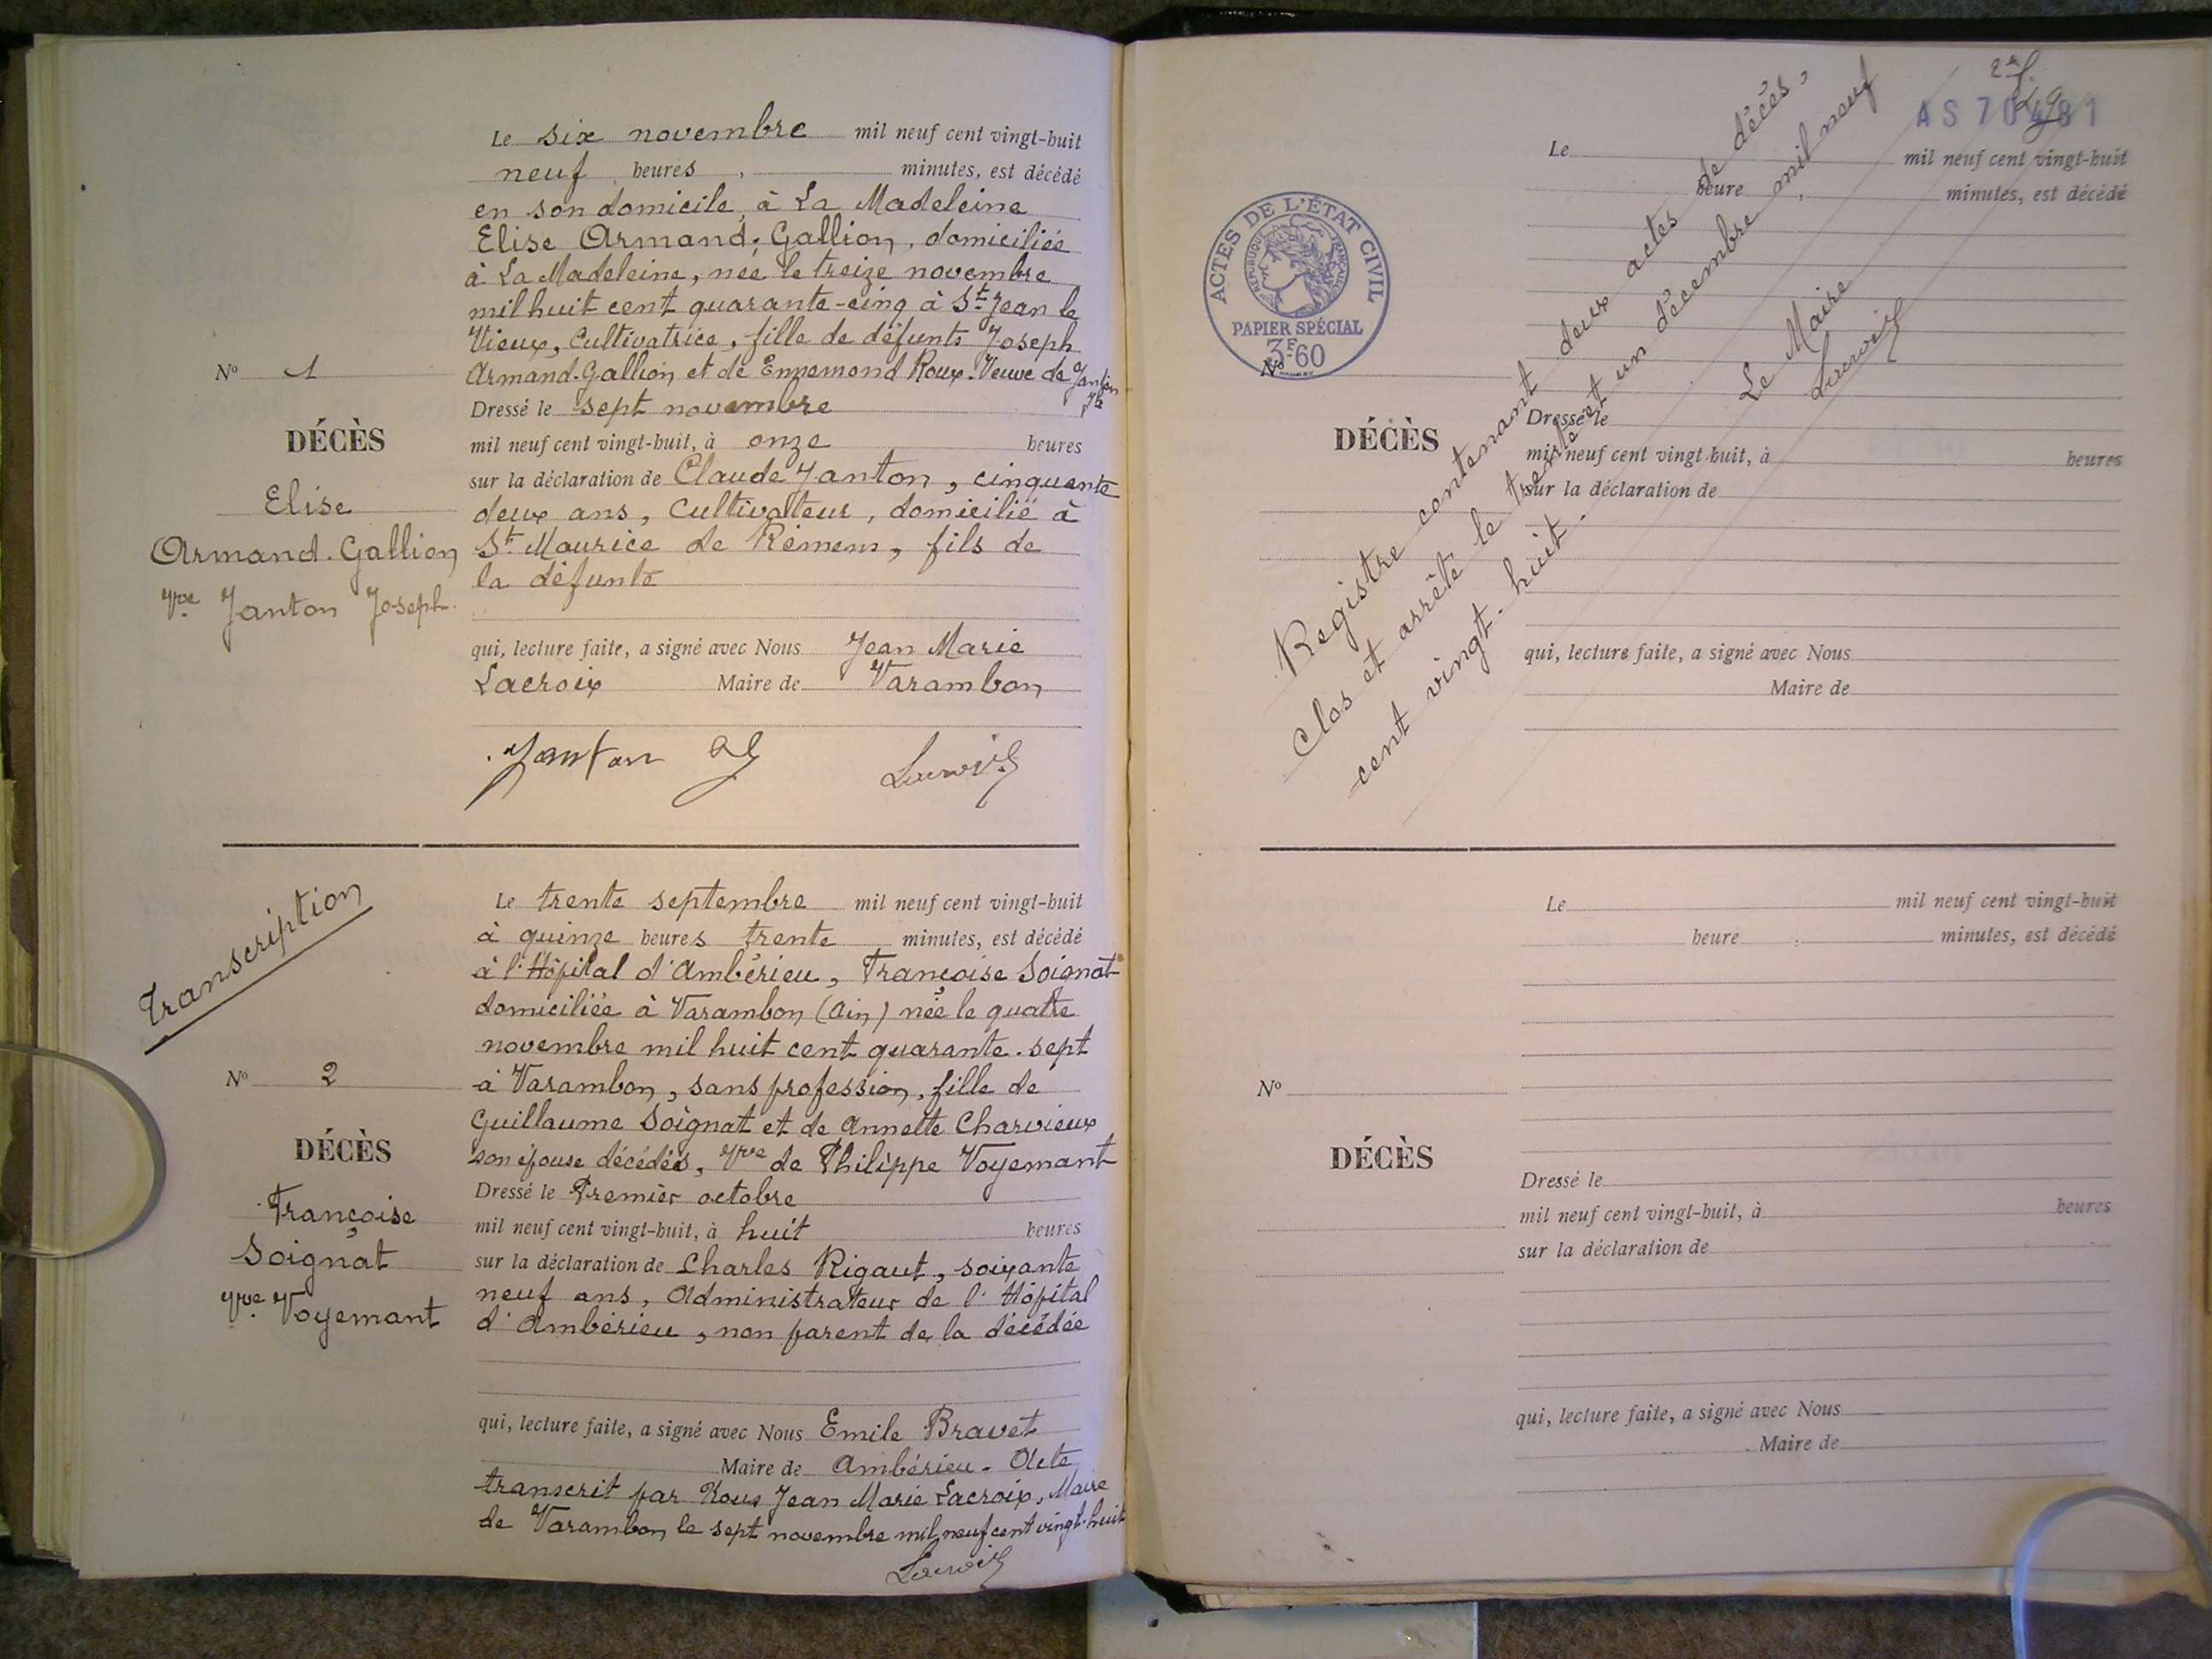 Le six novembre mil neuf cent vingt-huit
neuf heures, minutes, est décédé
en son domicile, à La Madeleine
Elise Armand-Gallion, domiciliée
à La Madeleine, née le treize novembre
mil huit cent quarante-cinq à St Jean le
Vieux, Cultivatrice, fille de défunts Joseph
Armand-Gallion et de Ennemond Roux. Veuve de Janton
Jh
Nº 1
DÉCÈS
Elise
Armand-Gallion
Vve Janton Joseph
Dressé le sept novembre
mil neuf cent vingt-huit, à onze heures
sur la déclaration de Claude Janton, cinquante
deux ans, Cultivateur, domicilié à
St Maurice de Rémens, fils de
la défunte
qui, lecture faite, a signé avec Nous Jean Marie
Lacroix Maire de Varambon
Janton
Lacroix
Transcription
Le trente septembre mil neuf cent vingt-huit
à quinze heures trente minutes, est décédé
à l'Hôpital d'Ambérieu, Françoise Soignat
domiciliée à Varambon (Ain) née le quatre
novembre mil huit cent quarante-sept
à Varambon, sans profession, fille de
Guillaume Soignat et de Annette Charvieux
son épouse décédés, Vve de Philippe Voyemant
Nº 2
DÉCÈS
Françoise
Soignat
Vve Voyemant
Dressé le Premier octobre
mil neuf cent vingt-huit, à huit heures
sur la déclaration de Charles Rigaut, soixante
neuf ans, Administrateur de l'Hôpital
d'Ambérieu, non parent de la décédée
qui, lecture faite, a signé avec Nous Emile Bravet
Maire de Ambérieu - Acte
transcrit par Nous Jean Marie Lacroix, Maire
de Varambon le sept novembre mil neuf cent vingt-huit
Lacroix
AS 70481
ACTES DE L'ÉTAT CIVIL
RÉPUBLIQUE FRANÇAISE
PAPIER SPÉCIAL
3F60
Le mil neuf cent vingt-huit
heure, minutes, est décédé
Nº
DÉCÈS
Dressé le
mil neuf cent vingt-huit, à heures
sur la déclaration de
qui, lecture faite, a signé avec Nous
Maire de
Registre contenant deux actes de décès,
Clos et arrêté le trente et un décembre mil neuf
cent vingt-huit.
Le Maire
Lacroix
Le mil neuf cent vingt-huit
heure, minutes, est décédé
Nº
DÉCÈS
Dressé le
mil neuf cent vingt-huit, à heures
sur la déclaration de
qui, lecture faite, a signé avec Nous
Maire de